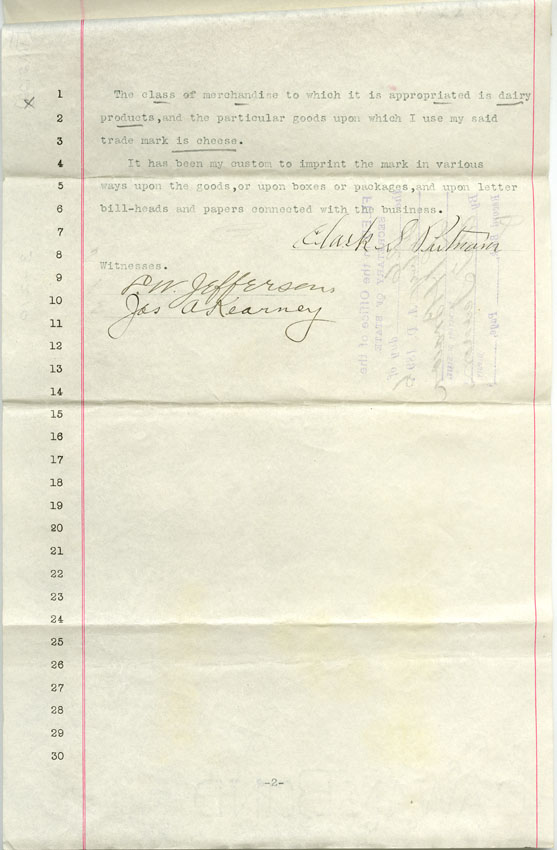 1 The class of merchandise to which it is appropriated is dairy
2 products,and the particular goods upon which I use my said
3 trade mark is cheese.
4 It has been my custom to imprint the mark in various
5 ways upon the goods,or upon boxes or packages,and upon letter
6 bill-heads and papers connected with the business.
7 Clark S Putnam
8 Witnesses.
9 W. Jefferson
10 Jas A Kearney
11
12
13
14
15
16
17
18
19
20
21
22
23
24
25
26
27
28
29
30
-2-